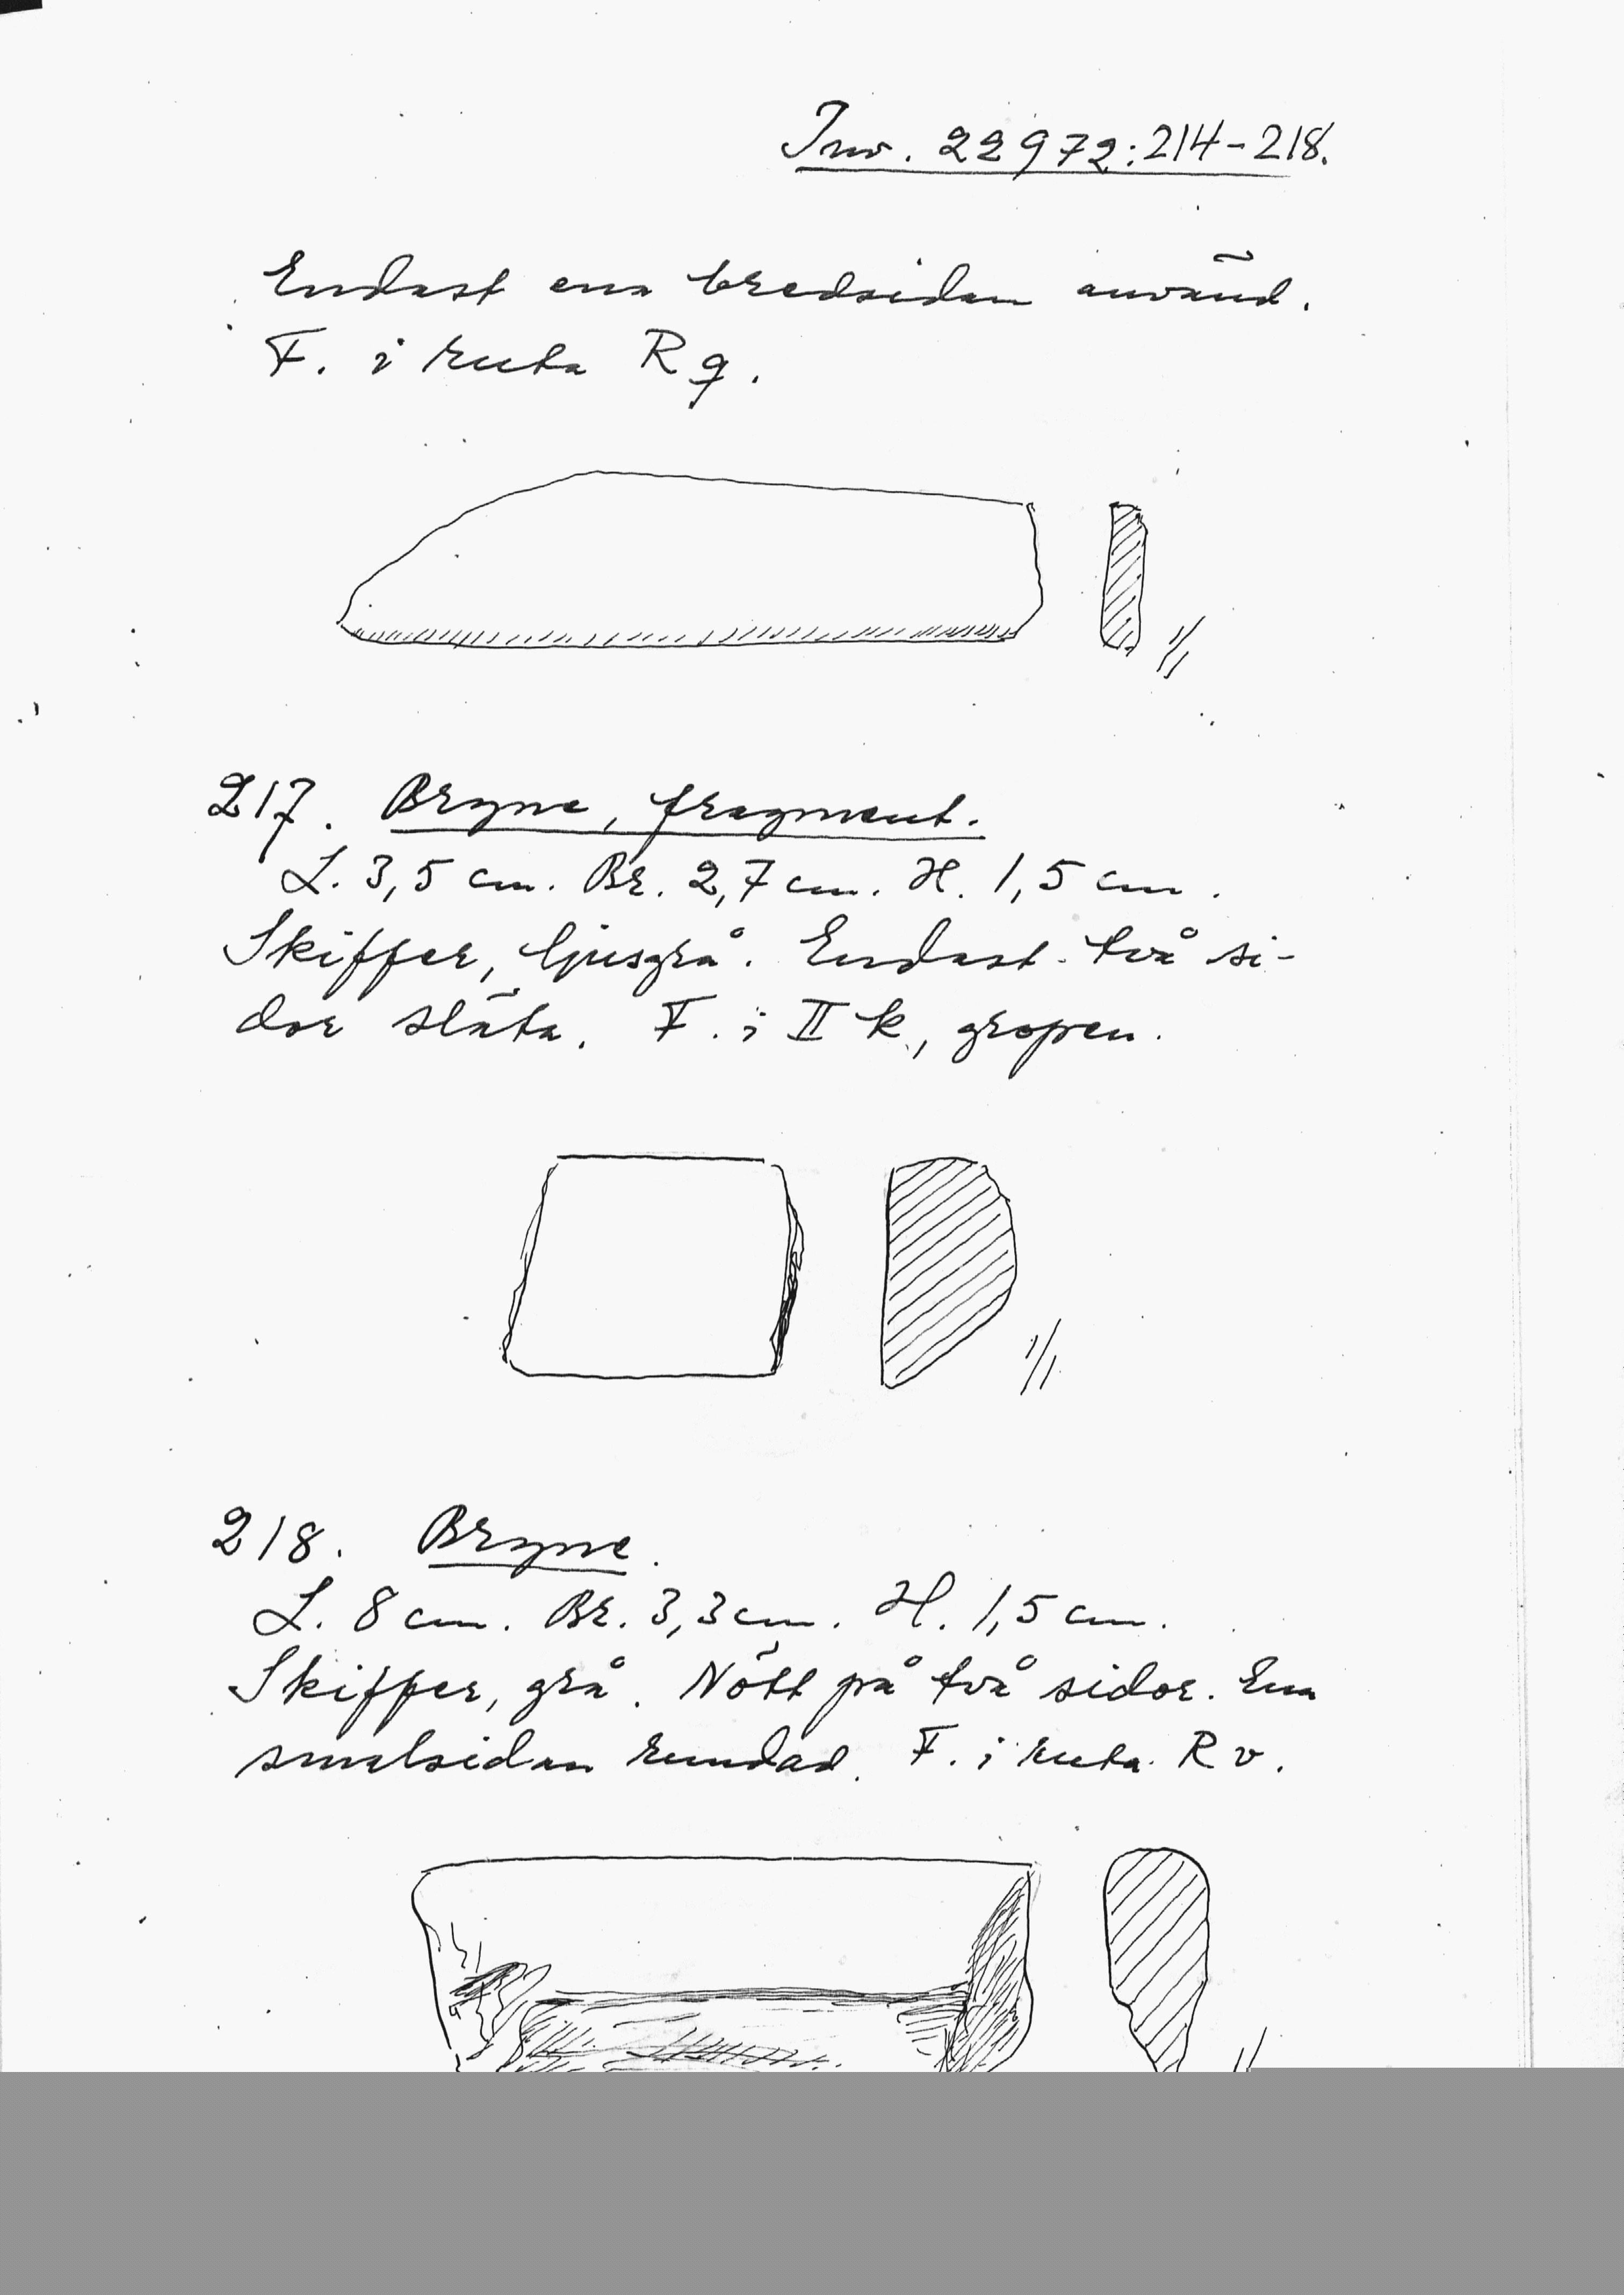 Inv. 22972:214-218.
Endast ena bredsidan använd.
F. i ruta R q.
1/1
217. Bryne, fragment.
L. 3,5 cm. Br. 2,7 cm. H. 1,5 cm.
Skiffer, ljusgrå. Endast två si-
dor släta. F. i II k, gropen.
1/1
218. Bryne.
L. 8 cm. Br. 3,3 cm. H. 1,5 cm.
Skiffer, grå. Nött på två sidor. Ena
smalsidan rundad. F. i ruta R v.